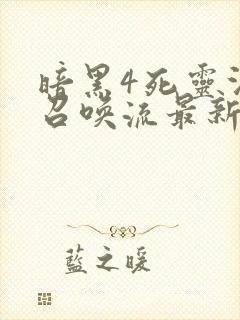 暗黑4死靈
召唤流最新
藍之暖